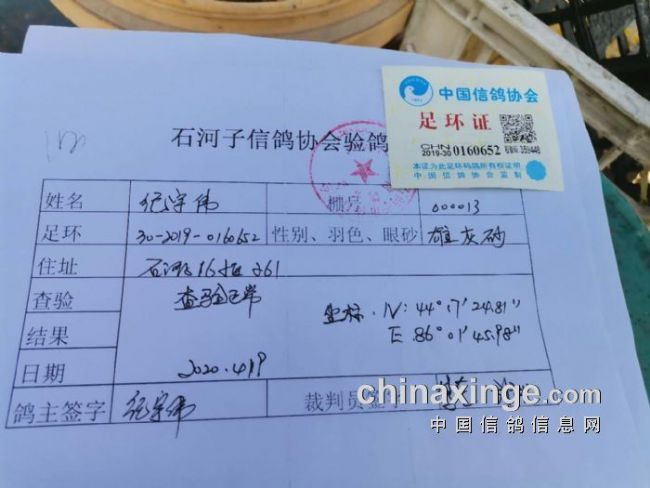 中国信鸽协会
足环证
CHN
2019-30 0160652
本证为此足环鸽所有权证明
中国信鸽协会监制
石河子信鸽协会验鸽
姓名 纪宇伟 棚号 000013
足环 30-2019-0160652 性别、羽色、眼砂 雄灰砂
住址
查验 查验正常 坐标:N:44°17'24.81"
结果 E:86°01'45.98"
日期 2020.4.19
鸽主签字 纪宇伟 裁判员签字
chinaxinge.com
中国信鸽信息网